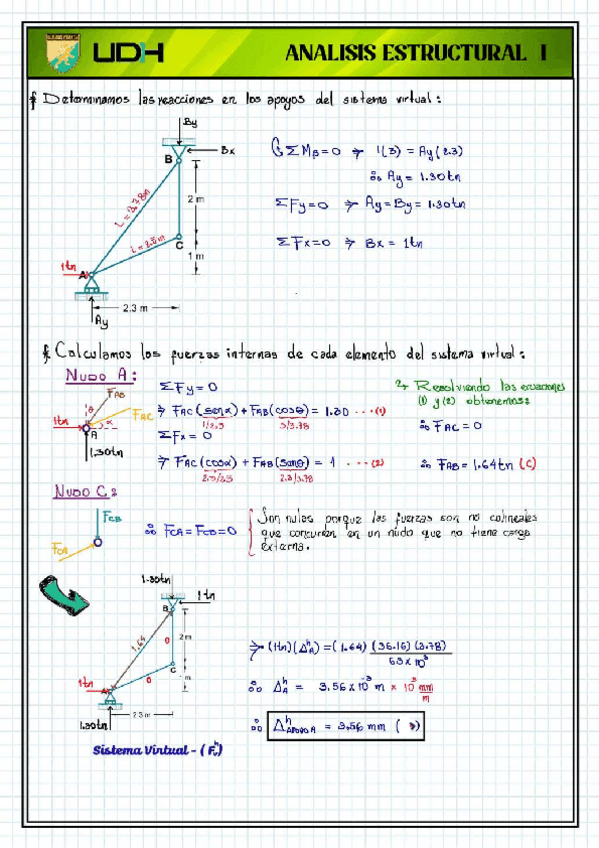 UDH
ANALISIS ESTRUCTURAL I
* Determinamos las reacciones en los apoyos del sistema virtual:
By
Bx
B
L = 3.78m
2 m
L = 2.5m
C
1 m
1tn
A
2.3 m
Ay
ΣM_B=0 → 1(3) = Ay(2.3)
∴ Ay = 1.30tn
ΣFy=0 → Ay=By= 1.30tn
ΣFx=0 → Bx = 1tn
* Calculamos las fuerzas internas de cada elemento del sistema virtual:
NUDO A:
F_AB
θ
F_AC
α
1tn
A
1.30tn
ΣFy=0
→ F_AC(senα)+F_AB(cosθ) = 1.30 ...(1)
1/2.5
3/3.78
ΣFx = 0
→ F_AC(cosα)+F_AB(senθ) = 1 ...(2)
2.3/2.5
2.3/3.78
Resolviendo las ecuaciones
(1) y (2) obtenemos:
∴ F_AC = 0
∴ F_AB = 1.64tn (C)
NUDO C:
F_CB
F_CA
∴ F_CA = F_CB = 0
Son nulas porque las fuerzas son no colineales
que concurren en un nudo que no tiene carga
externa.
1.30tn
1tn
B
1.64
0
2 m
C
0
m
1tn
A
2.3 m
1.30tn
Sistema Virtual - (F_v^h)
→ (1tn)(Δ_A^h) = (1.64) (36.16)(3.78)
63 x 10³
∴ Δ_A^h = 3.56x10⁻³ m x 10³ mm
m
∴ Δ^h_APOYO A = 3.56 mm (→)